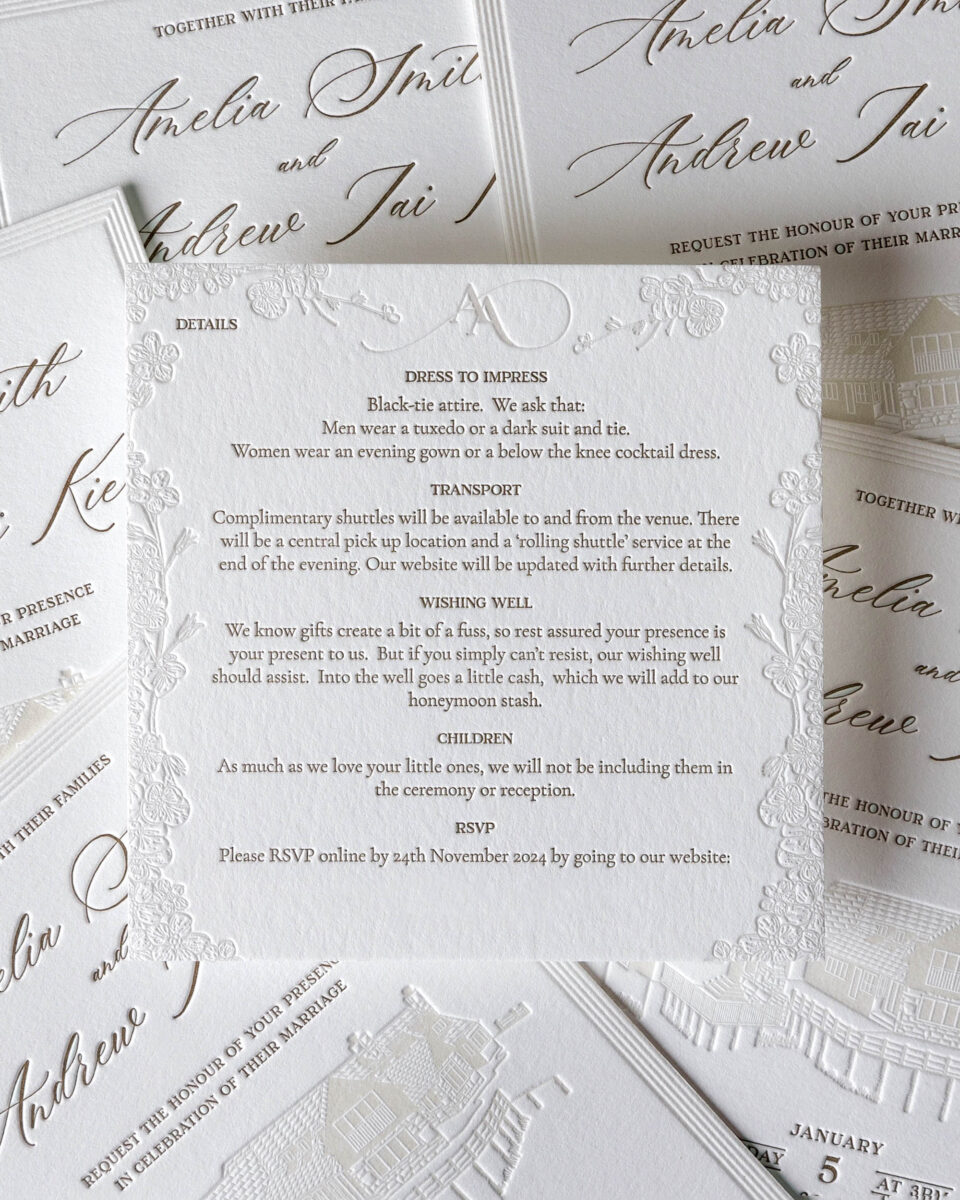 TOGETHER WITH THEIR
Amelia
and
Andrew Jai
Amelia
and
Andrew Jai
REQUEST THE HONOUR OF YOUR
CELEBRATION OF THEIR
AA
DETAILS
DRESS TO IMPRESS
Black-tie attire. We ask that:
Men wear a tuxedo or a dark suit and tie.
Women wear an evening gown or a below the knee cocktail dress.
TRANSPORT
Complimentary shuttles will be available to and from the venue. There
will be a central pick up location and a ‘rolling shuttle’ service at the
end of the evening. Our website will be updated with further details.
WISHING WELL
We know gifts create a bit of a fuss, so rest assured your presence is
your present to us. But if you simply can’t resist, our wishing well
should assist. Into the well goes a little cash, which we will add to our
honeymoon stash.
CHILDREN
As much as we love your little ones, we will not be including them in
the ceremony or reception.
RSVP
Please RSVP online by 24th November 2024 by going to our website:
PRESENCE
MARRIAGE
THEIR FAMILIES
and
Andrew
REQUEST THE HONOUR OF YOUR
IN CELEBRATION OF THEIR MARRIAGE
TOGETHER
Amelia
and
THE HONOUR OF
OF
JANUARY
5
AT